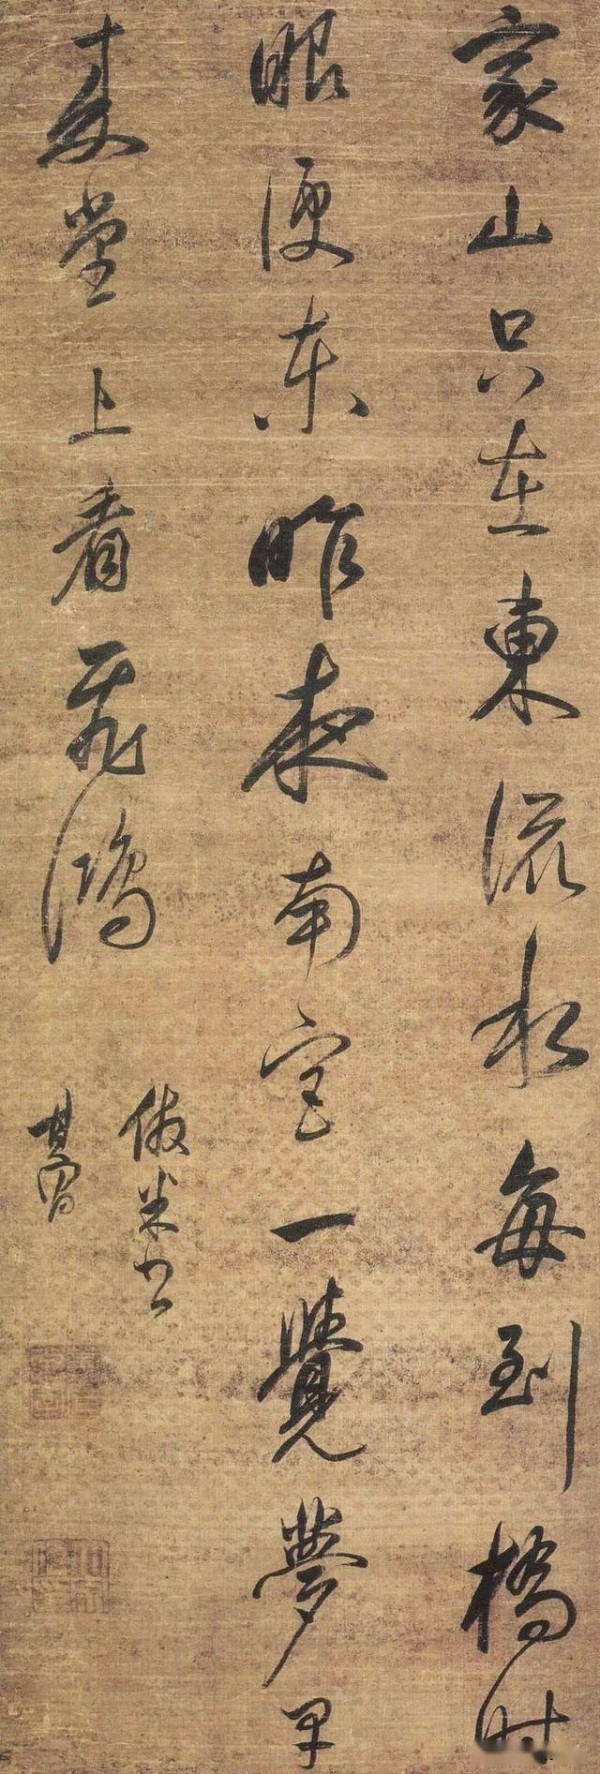 家山只在東流水每到橋時
眼便东昨夜南一覺夢早
来堂上看飛鴻
倣米書
其昌